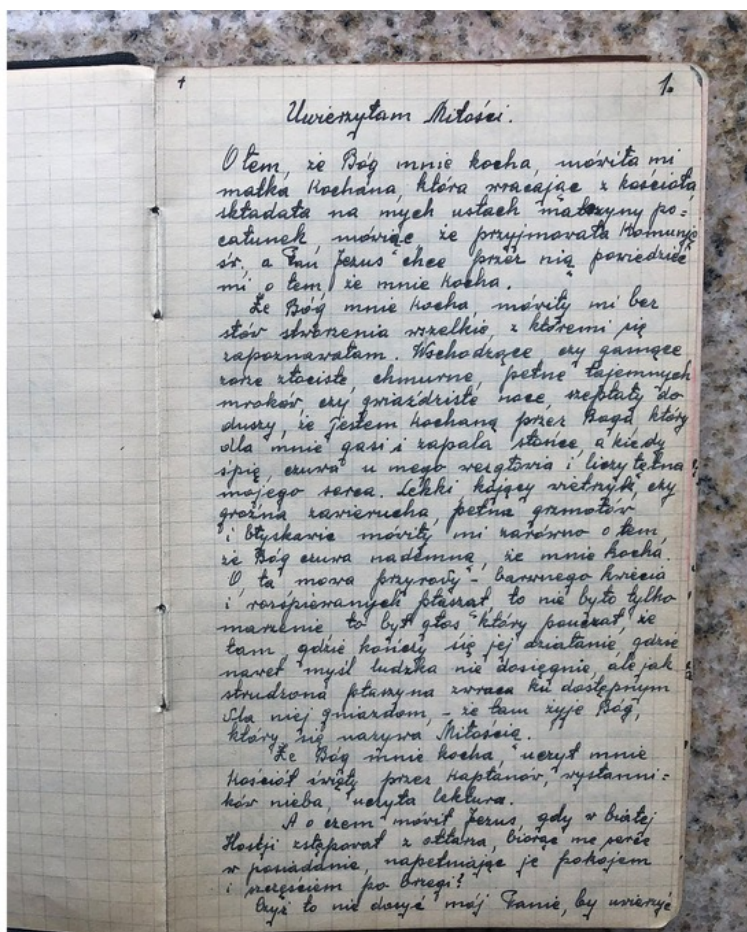 + 1.
Uwierzyłam Miłości.
O tem, że Bóg mnie kocha, mówiła mi
matka kochana, która wracając z kościoła
składała na mych ustach matczyny po=
całunek, mówiąc że przyjmowała Komunję
św., a Pan Jezus chce przez nią powiedzieć
mi o tem, że mnie kocha.
Że Bóg mnie kocha, mówiły mi bez
słów stworzenia wszelkie, z któremi się
zapoznawałam. Wschodzące czy gasnące
zorze złociste, chmurne, pełne tajemnych
mroków, czy gwiaździste noce szeptały do
duszy, że jestem kochaną przez Boga, który
dla mnie gasi i zapala słońce, a kiedy
śpię, czuwa u mego wezgłowia i liczy tętna
mojego serca. Lekki, kojący wietrzyk, czy
groźna zawierucha, pełna grzmotów
i błyskawic mówiły mi zarówno o tem,
że Bóg czuwa nademną, że mnie kocha.
O, ta mowa przyrody - barwnego kwiecia
i rozśpiewanych ptasząt to nie było tylko
marzenie to był głos który pouczał, że
tam, gdzie kończy się jej działanie, gdzie
nawet myśl ludzka nie dosięgnie, ale jak
strudzona ptaszyna zwraca ku dostępnym
dla niej gniazdom, - że tam żyje Bóg,
który się nazywa Miłością.
Że Bóg mnie kocha, uczył mnie
Kościół święty przez kapłanów, wysłanni=
ków nieba, uczyła lektura.
A o czem mówił Jezus, gdy w białej
Hostji zstępował z ołtarza, biorąc me serce
w posiadanie, napełniając je pokojem
i szczęściem po brzegi?
Czyż to nie dosyć mój Panie, by uwierzyć